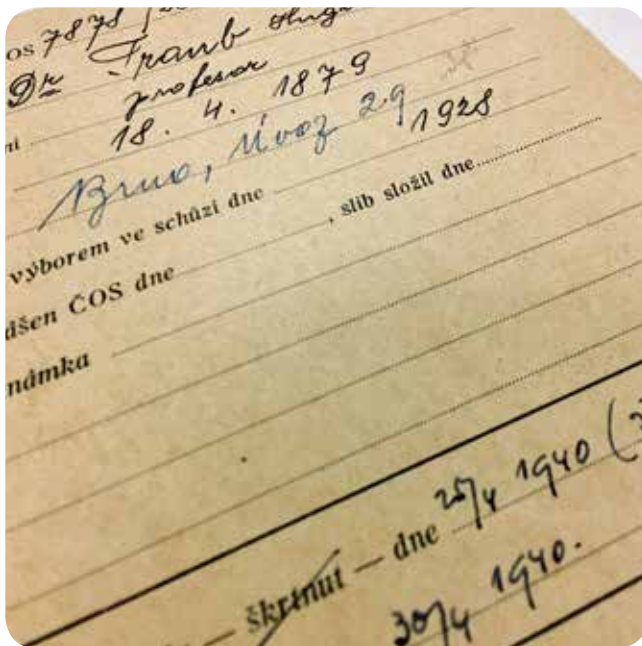 os 7878
Dr Traub Hugo
profesor
ní 18. 4. 1879
Brno, Úvoz 29
výborem ve schůzi dne 1928
dšen ČOS dne , slib složil dne
námka
škrtnut — dne 25/4 1940 (
30/4 1940.